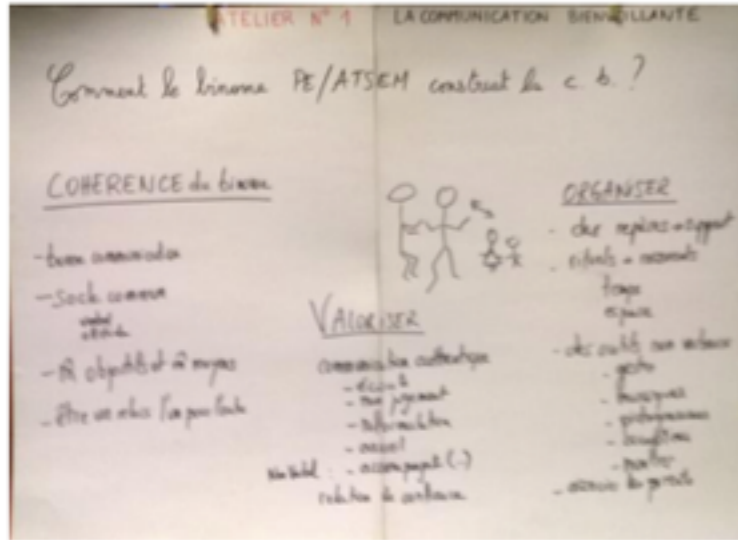 ATELIER N° 1 LA COMMUNICATION BIENVEILLANTE
Comment le binome PE/ATSEM construit la c. b. ?
COHERENCE du binome
- bonne communication
- Socle commun
- m̂ objectifs et m̂ moyens
- être un relais l'un pour l'autre
VALORISER
communication authentique
- écoute
- non jugement
- reformulation
- accueil
Non Verbal : - accompagnt (..)
relation de confiance
ORGANISER
- des repères
- rituels
temps
espace
- des outils non verbaux
- gestes
- musiques
- pictogrammes
- associer les parents